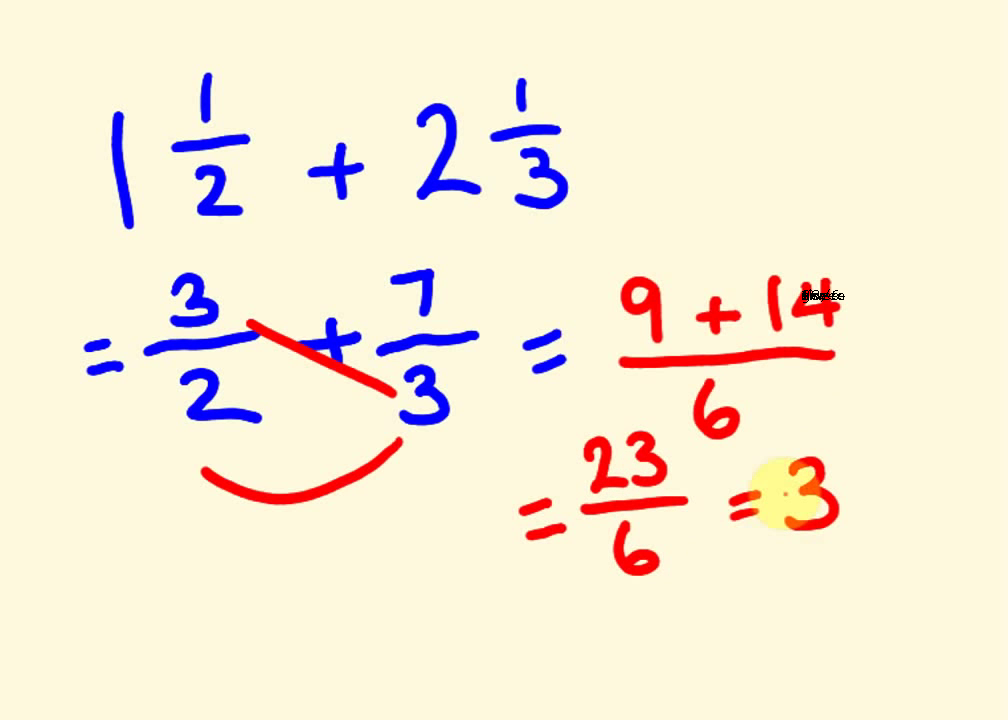 1 1/2 + 2 1/3
= 3/2 + 7/3 = 9 + 14/6
= 23/6 = 3